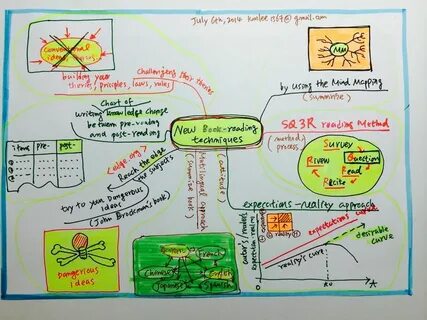 July 6th, 2014
@gmail.com
Conventional
ideas,
challenging
building your
theories, principles, laws, rules
MM
by using the Mind Mapping
(summarize)
Chart of
writing knowledge change
between pre-reading
and post-reading
New Book-reading
techniques
SQ3R reading Method
(method)
process
Survey
Question
Read
Recite
Items
pre-
post-
<edge.org>
Reach the edge
try to run dangerous
ideas
(John Brockman's book)
Dangerous
ideas
Multilingual approach
(summarize books)
(attitude)
French
Chinese
English
Japanese
Spanish
expectations-reality approach
expectations curve
desirable
curve
reality's curve